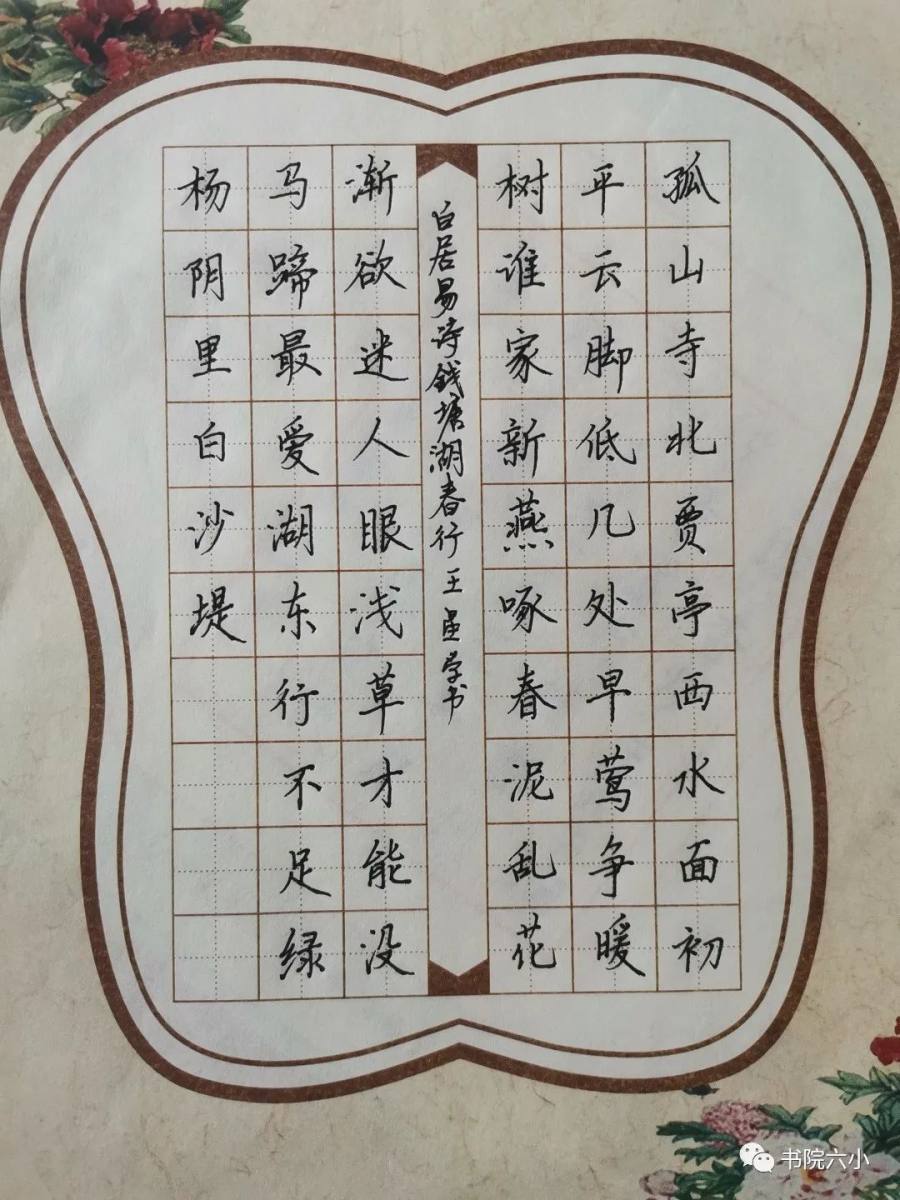 孤山寺北贾亭西水面初
平云脚低几处早莺争暖
树谁家新燕啄春泥乱花
白居易诗钱塘湖春行 王 学书
渐欲迷人眼浅草才能没
马蹄最爱湖东行不足绿
杨阴里白沙堤
书院六小